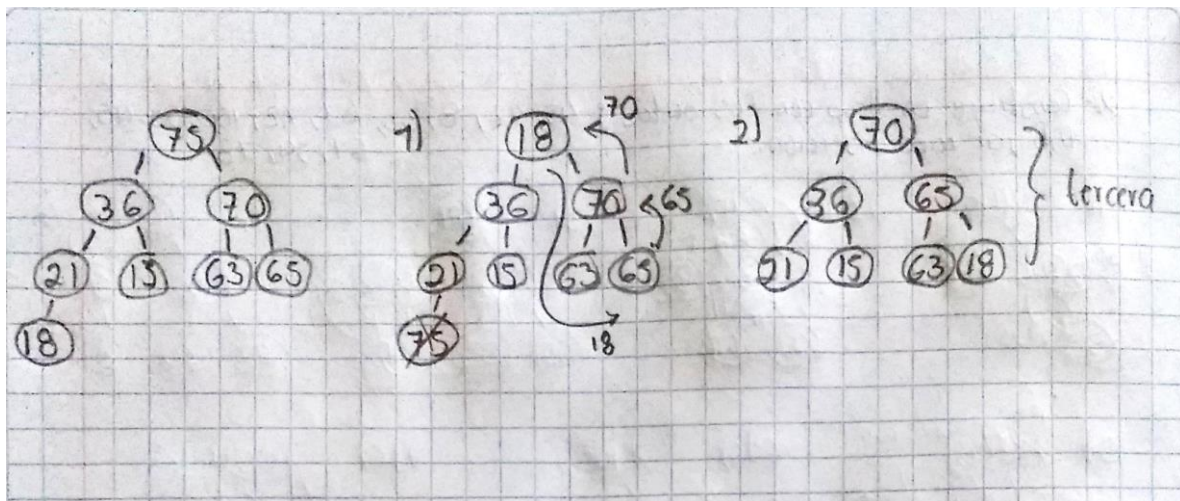 75
36 70
21 15 63 65
18
1) 18 70
36 70 65
21 15 63 65
75
18
2) 70
36 65
21 15 63 18
tercera